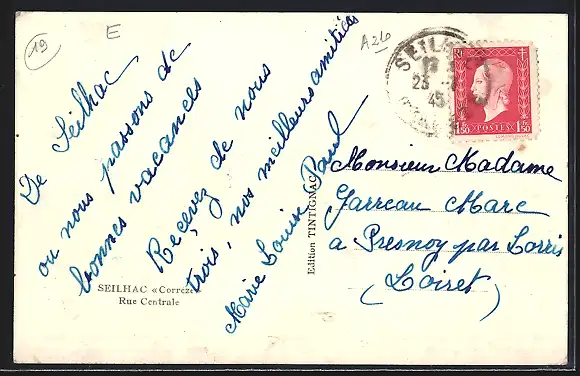 19
E
A2b
De Seilhac
ou nous passons de
bonnes vacances
Recevez de nous
trois, nos meilleurs amitiés
Marie Louise Paul
SEILHAC «Corrèze»
Rue Centrale
Edition TINTIGNAC
SEILHAC
45
RF
1F50 POSTES 1F50
Monsieur Madame
Jarreau Marc
a Presnoy par Lorris
(Loiret)